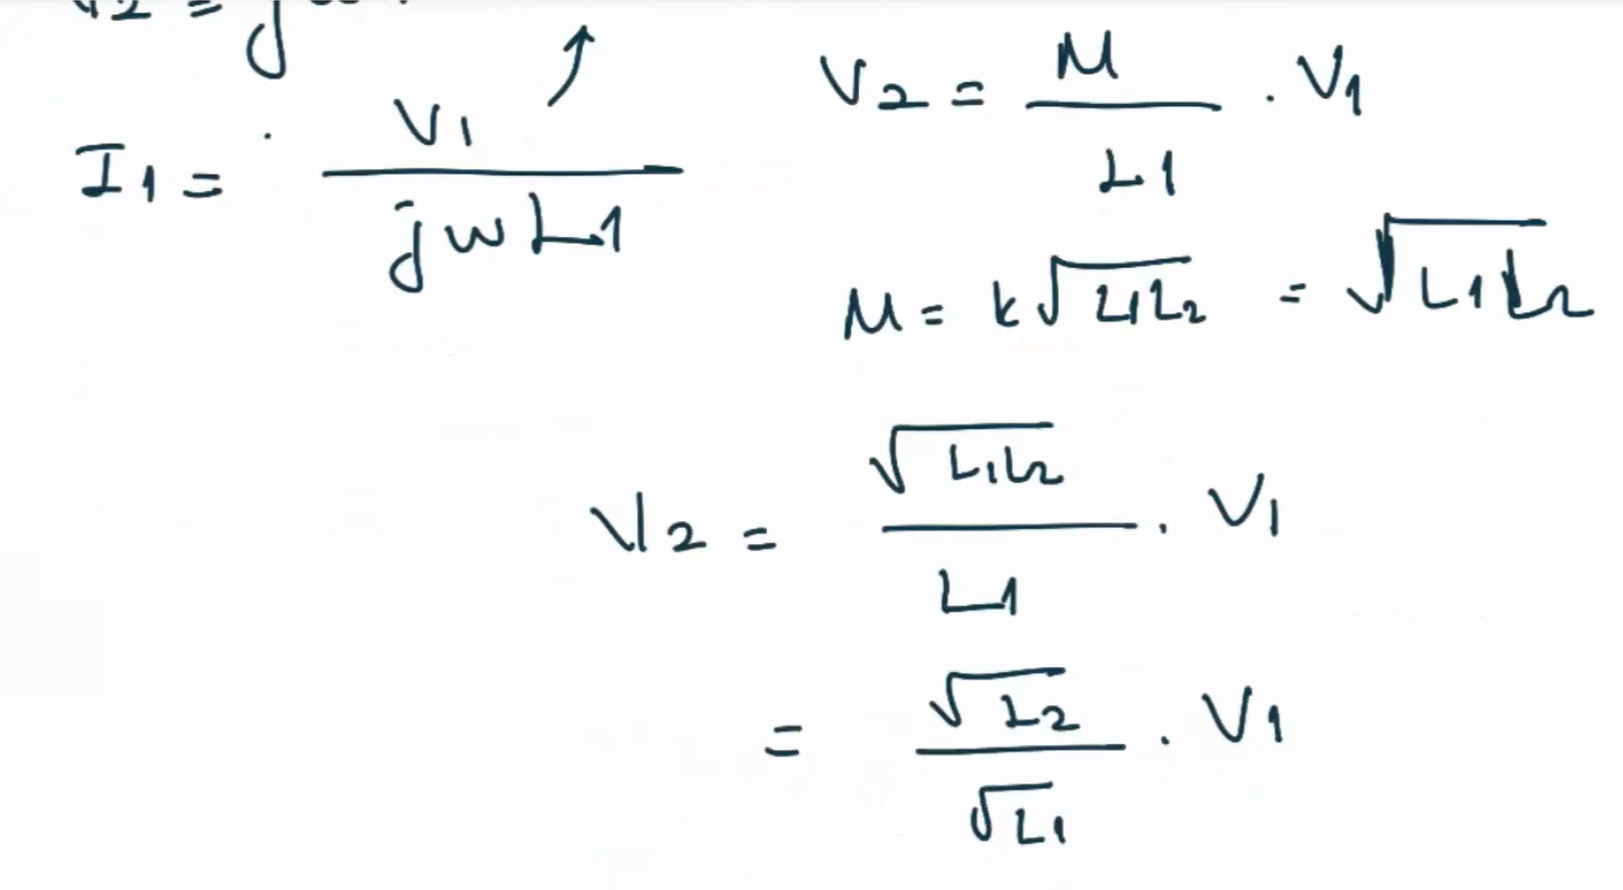 V2 = j
I1 = V1 / jwL1
V2 = M / L1 . V1
M = k√L1L2 = √L1L2
V2 = √L1L2 / L1 . V1
= √L2 / √L1 . V1